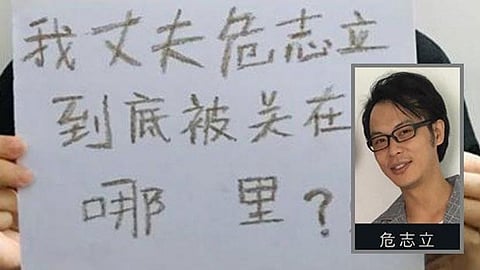 我丈夫危志立
到底被关在
哪里?
危志立